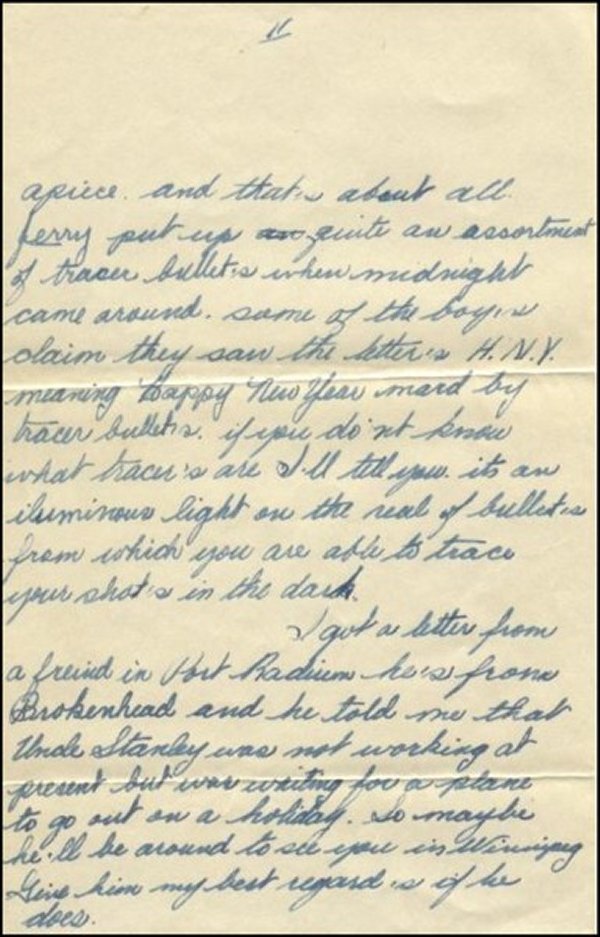 11
apiece. and that's about all.
Jerry put up an quite an assortment
of tracer bullet's when midnight
came around. some of the boy's
claim they saw the letter's H.N.Y.
meaning Happy New Year mard by
tracer bullet's. if you do'nt know
what tracer's are I'll tell you. its an
iluminous light on the real of bullet's
from which you are able to trace
your shot's in the dark.
I got a letter from
a freind in Port Radium he's from
Brokenhead and he told me that
Uncle Stanley was not working at
present but was waiting for a plane
to go out on a holiday. So maybe
he'll be around to see you in Winnipeg
Give him my best regard's if he
does.